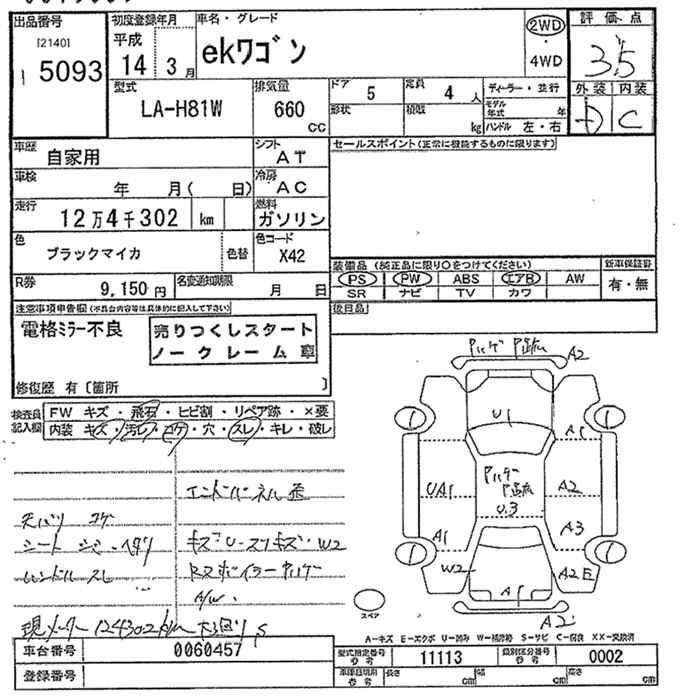 出品番号
[2140]
5093
初度登録年月
平成
14 3月
車名・グレード
ekワゴン
2WD
・
4WD
評価点
3.5
外装 内装
D C
型式
LA-H81W
排気量
660
CC
ドア 5
形状
定員 4 人
積載 kg
ディーラー・並行
モデル年式 年
ハンドル 左・右
車歴 自家用
シフト AT
セールスポイント(正常に機能するものに限ります)
車検 年 月( 日)
冷房 AC
走行 12万4千302 km
燃料 ガソリン
色 ブラックマイカ 色替
色コード X42
装備品(純正品に限り○をつけてください)
新車保証書
PS PW ABS エアB AW
有・無
SR ナビ TV カワ
R券 9,150円
名変通知期限 月 日
後日品
注意事項申告欄(不具合内容等は具体的に記入して下さい)
電格ミラー不良
売りつくしスタート
ノークレーム車
修復歴 有〔箇所 〕
検査員記入欄
FW キズ・飛石・ヒビ割・リペア跡・×要
内装 キズ・汚レ・コゲ・穴・スレ・キレ・破レ
天バリ コゲ
ハンドル スレ
キズ U・スリキズ・W2
A/W
現メーター124302km
A2
U1
A1
UA1
A2
U3
A1
A3
W2
A2E
A1
A2
スペア
A-キズ E-エクボ U-凹み W-補修跡 S-サビ C-腐食 XX-交換済
車台番号 0060457
登録番号
型式指定番号 参考 11113
類別区分番号 参考 0002
車庫証明用 参考 長さ cm 幅 cm 高さ cm